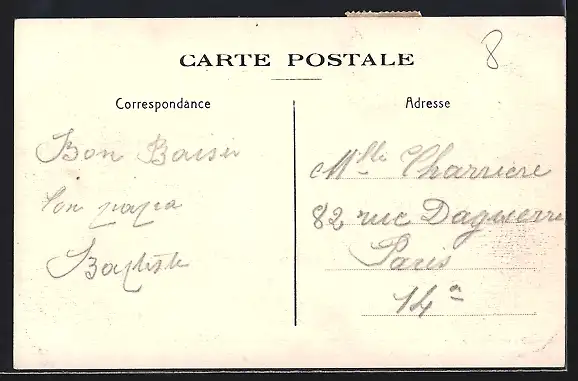 CARTE POSTALE
8
Correspondance
Bon Baiser
ton papa
Baptiste
Adresse
Mlle Charriere
82 rue Daguerre
Paris
14e